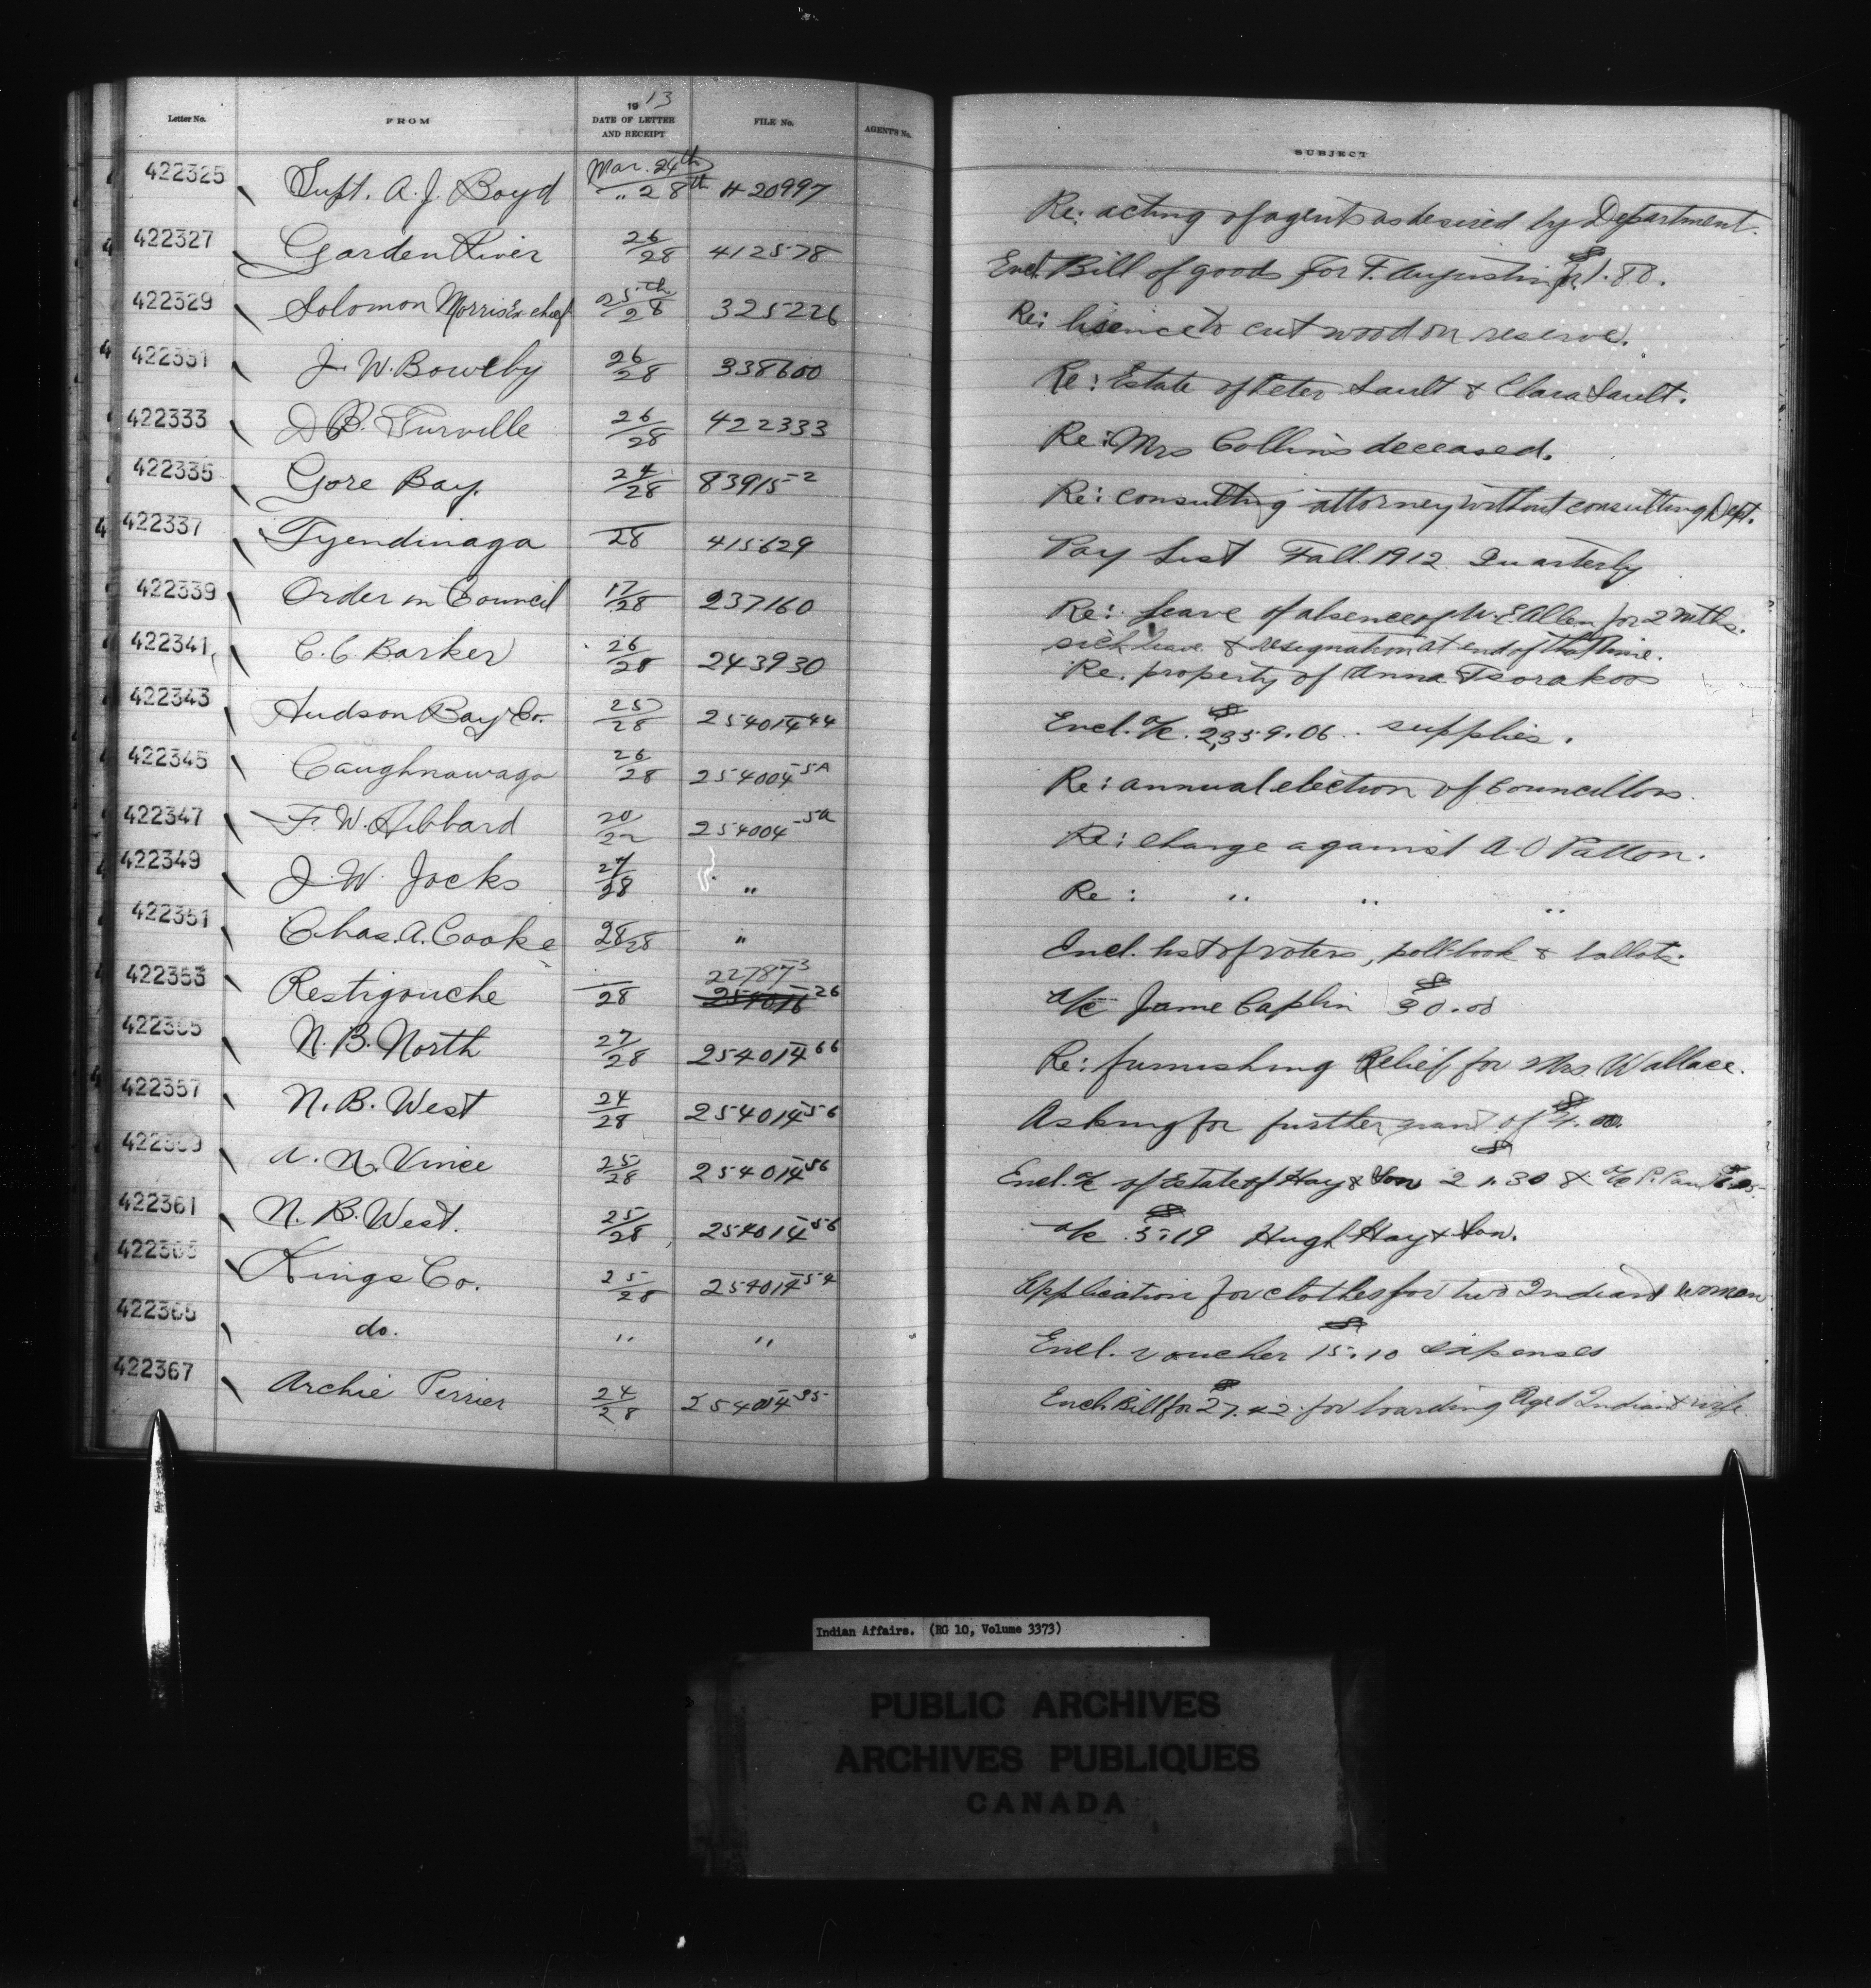 Letter No. FROM 1913 DATE OF LETTER AND RECEIPT FILE No. AGENT'S No. SUBJECT
422325 Supt. A. J. Boyd Mar. 24th / " 28th 420997 Re: acting of agents as desired by Department.
422327 Garden River 26/28 412578 Encl. Bill of goods for F. Augustin for $1.80.
422329 Solomon Morris Ex chief 25th/28 325226 Re: lisence to cut wood on reserve.
422331 J. W. Bowlby 26/28 338600 Re: Estate of Peter Sault & Clara Sault.
422333 D. B. Turville 26/28 422333 Re: Mrs Collins deceased.
422335 Gore Bay. 24/28 83915-2 Re: consulting attorney without consulting Dept.
422337 Tyendinaga —/28 415629 Pay List Fall 1912 Quarterly
422339 Order in Council 17/28 237160 Re: leave of absence of W. E. Allen for 2 mths.
sick leave & resignation at end of that time.
422341 C. C. Barker 26/28 243930 Re. property of Anna Tsorakoos
422343 Hudson Bay Co. 25/28 254014-44 Encl. a/c. $2,359.06 .. supplies.
422345 Caughnawaga 26/28 254004-5A Re: annual election of Councillors.
422347 F. W. Hibbard 20/22 254004-5a Re: charge against A O Patton.
422349 J. W. Jocks 27/28 " Re: " " "
422351 Chas. A. Cooke 28/28 " Encl. list of voters, poll book & ballots.
422353 Restigouche —/28 22787-3 254016-26 a/c Jame Caplin $30.00
422355 N. B. North 27/28 254014-66 Re: furnishing Relief for Mrs Wallace.
422357 N. B. West 24/28 254014-56 Asking for further grant of $4.00.
422359 A. N. Vince 25/28 254014-56 Encl. a/c of Estate of Hay & Son $21.30 & a/c P. Paul
422361 N. B. West. 25/28 254014-56 a/c $5.19 Hugh Hay & Son.
422363 Kings Co. 25/28 254014-54 Application for clothes for two Indian women
422365 do. " " Encl. voucher $15.10 expenses
422367 Archie Perrier 24/28 254014-35 Encl. Bill for $27.42 for boarding Aged Indian & wife.
Indian Affairs. (RG 10, Volume 3373)
PUBLIC ARCHIVES
ARCHIVES PUBLIQUES
CANADA